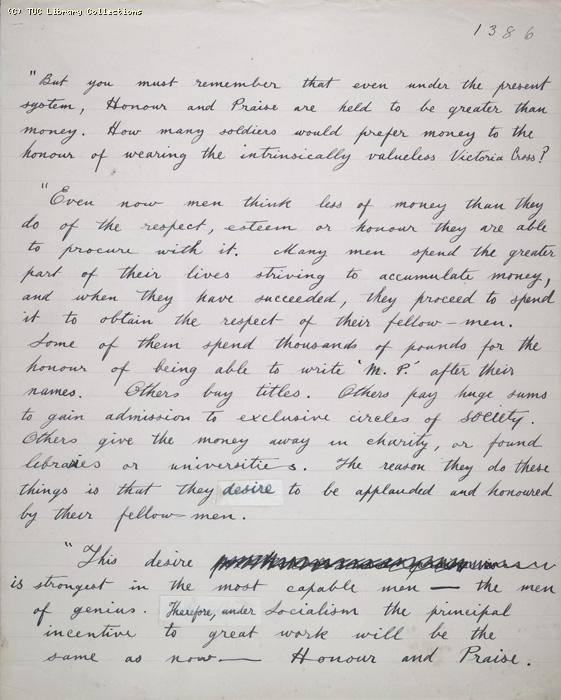 (C) TUC Library Collections
1386
"But you must remember that even under the present
system, Honour and Praise are held to be greater than
money. How many soldiers would prefer money to the
honour of wearing the intrinsically valueless Victoria Cross?
"Even now men think less of money than they
do of the respect, esteem or honour they are able
to procure with it. Many men spend the greater
part of their lives striving to accumulate money,
and when they have succeeded, they proceed to spend
it to obtain the respect of their fellow-men.
Some of them spend thousands of pounds for the
honour of being able to write 'M.P.' after their
names. Others buy titles. Others pay huge sums
to gain admission to exclusive circles of society.
Others give the money away in charity, or found
libraries or universities. The reason they do these
things is that they desire to be applauded and honoured
by their fellow-men.
"This desire
is strongest in the most capable men — the men
of genius. Therefore, under Socialism the principal
incentive to great work will be the
same as now — Honour and Praise.